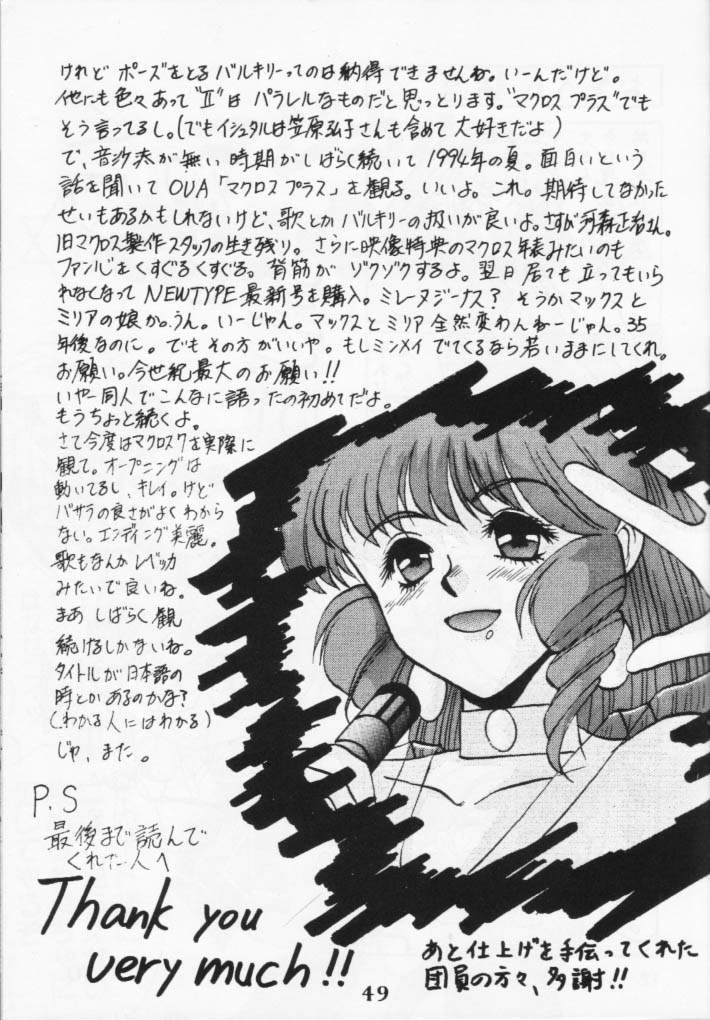 けれど ポーズをとる バルキリーってのは納得できませんね。いーんだけど。
他にも色々あって"Ⅱ"は パラレルなものだと思っとります。"マクロス プラス"でも
そう言ってるし。(でもイシュタルは笠原弘子さんも含めて 大好きだよ)
で、音沙汰が無い 時期がしばらく続いて 1994年の夏。面白いという
話を聞いて OVA「マクロスプラス」を観る。いいよ。これ。期待してなかった
せいもあるかもしれないけど、歌とか バルキリーの扱いが良いよ。さすが河森正治さん。
旧マクロス製作スタッフの生き残り。さらに映像特典のマクロス年表みたいのも
ファン心をくすぐるくすぐる。背筋が ゾクゾクするよ。翌日 居ても 立ってもいら
れなくなって NEWTYPE最新号を購入。ミレーヌジーナス? そうかマックスと
ミリアの娘か。うん。いーじゃん。マックスとミリア 全然変わんねーじゃん。35
年後なのに。でもその方がいいや。もしミンメイ でてくるなら若いままにしてくれ。
お願い。今世紀最大のお願い!!
いやー同人でこんなに語ったの初めてだよ。
もうちょっと続くよ。
さて今度はマクロス7を実際に
観て。オープニングは
動いてるし、キレイ。けど
バサラの良さがよくわから
ない。エンディング美麗。
歌もなんか レベッカ
みたいで良いね。
まあ しばらく観
続けるしかないね。
タイトルが日本語の
時とかあるのかな?
(わかる人にはわかる)
じゃ、また。
P.S
最後まで読んで
くれた人へ
Thank you
very much!!
あと仕上げを手伝ってくれた
団員の方々、多謝!!
49